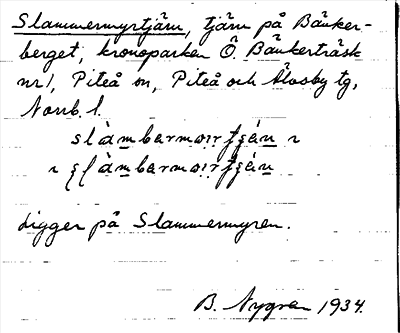 Slammermyrtjärn, tjärn på Bänker-
berget, kronoparken Ö. Bänkerträsk
nr 1, Piteå sn, Piteå och Älvsby tg,
Norrb. l.
ligger på Slammermyren.
B. Nygren 1934.